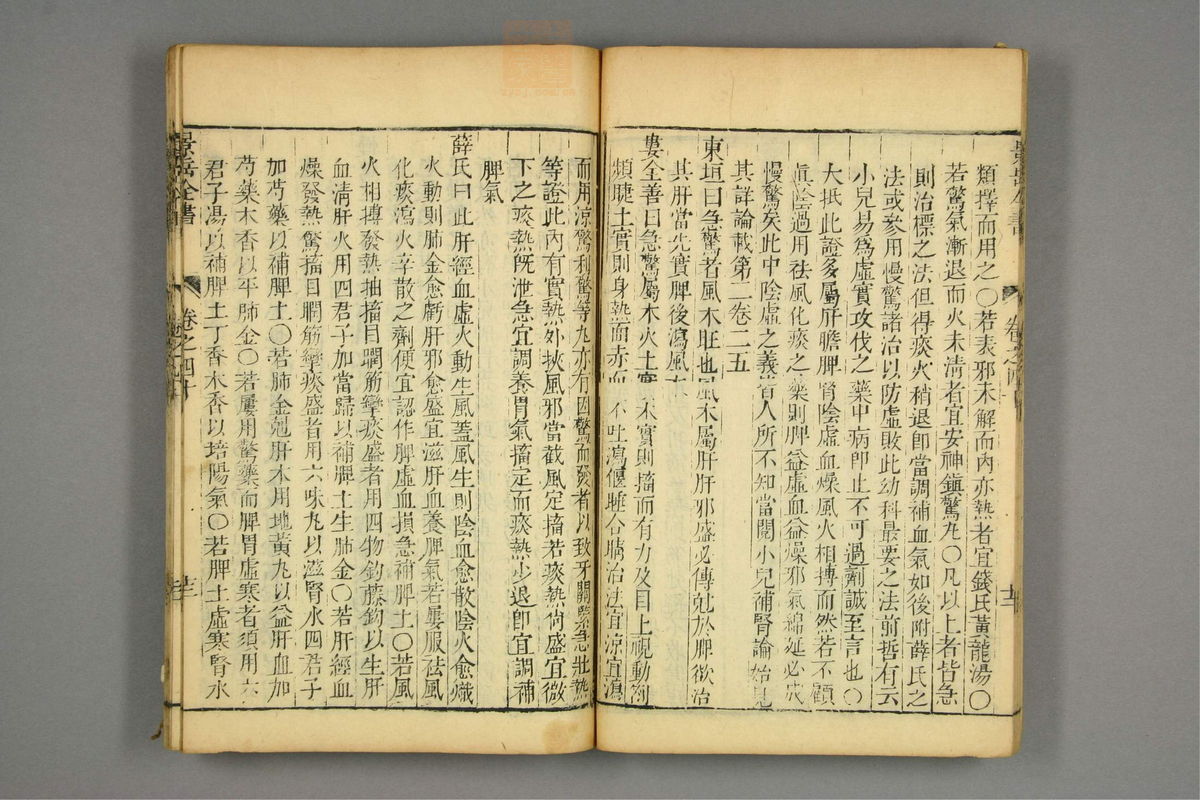 類擇而用之〇若表邪未解而內亦熱者宜錢氏黃龍湯〇
若驚氣漸退而火未清者宜安神鎮驚丸〇凡以上者皆急
則治標之法但得痰火稍退卽當調補血氣如後附薛氏之
法或參用慢驚諸治以防虛敗此幼科最要之法前哲有云
小兒易爲虛實攻伐之藥中病卽止不可過劑誠至言也〇
大抵此證多屬肝膽脾腎陰虛血燥風火相搏而然若不顧
眞陰過用袪風化痰之藥則脾益虛血益燥邪氣綿延必成
慢驚矣此中陰虛之義皆人所不知當閱小兒補腎論始見
其詳論載第二卷二五
東垣曰急驚者風木旺也風木屬肝肝邪盛必傳尅於脾欲治
其肝當先實脾後瀉風木
婁全善曰急驚屬木火土實木實則搐而有力及目上視動劄
頻睫土實則身熱面赤而不吐瀉偃睡合睛治法宜涼宜瀉
而用涼驚利驚等丸亦有因驚而發者以致牙關緊急壯熱
等證此內有實熱外挾風邪當截風定搐若痰熱尙盛宜微
下之痰熱旣泄急宜調養胃氣搐定而痰熱少退卽宜調補
脾氣
薛氏曰此肝經血虛火動生風蓋風生則陰血愈散陰火愈熾
火動則肺金愈虧肝邪愈盛宜滋肝血養脾氣若屢服袪風
化痰瀉火辛散之劑便宜認作脾虛血損急補脾土〇若風
火相搏發熱抽搐目瞤筋攣痰盛者用四物鈎藤鈎以生肝
血清肝火用四君子加當歸以補脾土生肺金〇若肝經血
燥發熱驚搐目瞤筋攣痰盛者用六味丸以滋腎水四君子
加芍藥以補脾土〇若肺金尅肝木用地黃丸以益肝血加
芍藥木香以平肺金〇若屢用驚藥而脾胃虛寒者須用六
君子湯以補脾土丁香木香以培陽氣〇若脾土虛寒腎水
景岳全書
卷之四十